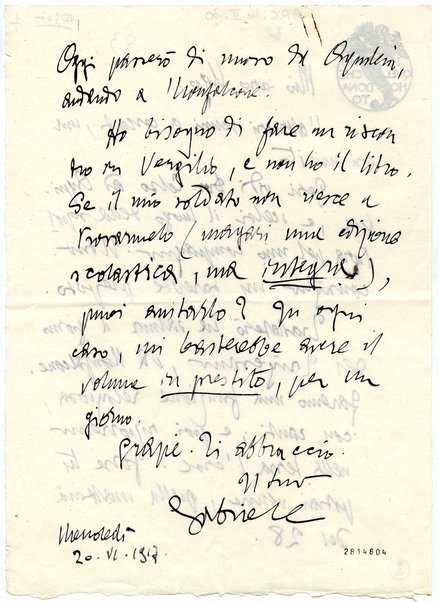 Oggi passerò di nuovo da Aquileia,
andando a Monfalcone.
Ho bisogno di fare un riscon
tro in Vergilio, e non ho il libro.
Se il mio soldato non riesce a
trovarmelo (magari una edizione
scolastica, ma integra),
puoi aiutarlo? In ogni
caso, mi basterebbe avere il
volume in prestito, per un
giorno.
Grazie. Ti abbraccio.
Il tuo
Gabriele
Mercoledì
20. VI. 1917
2814604